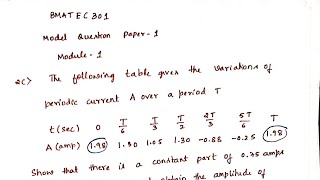 BMATEC301
Model Question Paper-1
Module-1
2C) The following table gives the variations of
periodic current A over a period T
t(sec) 0 T/6 T/3 T/2 2T/3 5T/6 T
A(amp) 1.98 1.30 1.05 1.30 -0.88 -0.25 1.98
Show that there is a constant part of 0.75 amps
obtain the amplitude of